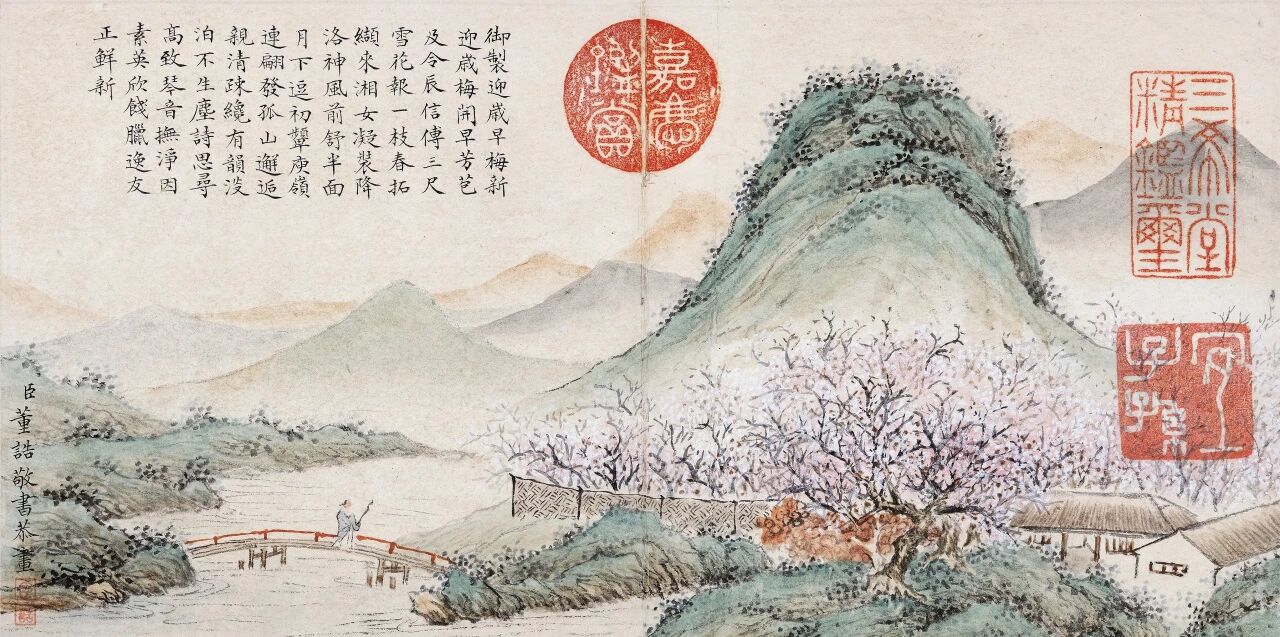 御製迎歲早梅新
迎歲梅開早芳苞
及令辰信傳三尺
雪花報一枝春拓
纈來湘女凝裝降
洛神風前舒半面
月下逗初顰庾嶺
連翩發孤山邂逅
親清疎纔有韻淡
泊不生塵詩思尋
高致琴音撫淨因
素英欣餞臘逸友
正鮮新
嘉慶
鑑賞
三希堂
精鑑璽
宜
子孫
臣董誥敬書恭畫